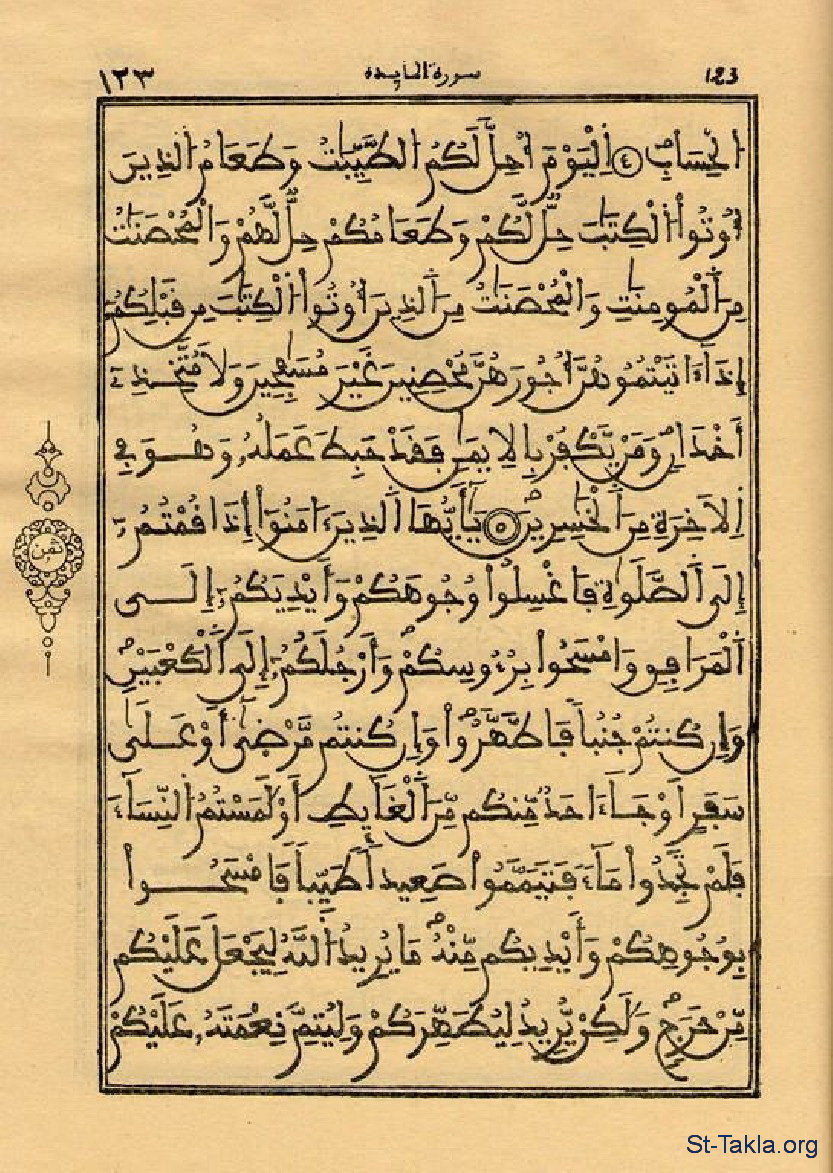 ١٢٣ سورة المايدة 123
الْحِسَابِ ٤ اِلْيَوْمَ أُحِلَّ لَكُمُ الطَّيِّبَٰتُ وَطَعَامُ الذِينَ
أُوتُواْ الْكِتَٰبَ حِلٌّ لَّكُمْ وَطَعَامُكُمْ حِلٌّ لَّهُمْ وَالْمُحْصَنَٰتُ
مِنَ الْمُومِنَٰتِ وَالْمُحْصَنَٰتُ مِنَ الذِينَ أُوتُواْ الْكِتَٰبَ مِن قَبْلِكُمُ
إِذَا ءَاتَيْتُمُوهُنَّ أُجُورَهُنَّ مُحْصِنِينَ غَيْرَ مُسَٰفِحِينَ وَلَا مُتَّخِذِے
أَخْدَانٍ وَمَنْ يَّكْفُرْ بِالِايمَٰنِ فَقَدْ حَبِطَ عَمَلُهُۥ وَهُوَ فِے
اِلَاخِرَةِ مِنَ الْخَٰسِرِينَ ٥ يَٰأَيُّهَا الذِينَ ءَامَنُواْ إِذَا قُمْتُمُۥ
إِلَى الصَّلَوٰةِ فَاغْسِلُواْ وُجُوهَكُمْ وَأَيْدِيَكُمُۥ إِلَى
الْمَرَافِقِ وَامْسَحُواْ بِرُءُوسِكُمْ وَأَرْجُلَكُمُۥ إِلَى الْكَعْبَيْنِ
وَإِن كُنتُمْ جُنُباً فَاطَّهَّرُواْ وَإِن كُنتُم مَّرْضَىٰ أَوْ عَلَىٰ
سَفَرٍ اَوْ جَاءَ احَدٌ مِّنكُم مِّنَ الْغَايِطِ أَوْ لَٰمَسْتُمُ النِّسَاءَ
فَلَمْ تَجِدُواْ مَاءً فَتَيَمَّمُواْ صَعِيداً طَيِّباً فَامْسَحُواْ
بِوُجُوهِكُمْ وَأَيْدِيكُم مِّنْهُ مَا يُرِيدُ اللَّهُ لِيَجْعَلَ عَلَيْكُم
مِّنْ حَرَجٍ وَلَٰكِنْ يُّرِيدُ لِيُطَهِّرَكُمْ وَلِيُتِمَّ نِعْمَتَهُۥ عَلَيْكُمْ
ثمن
St-Takla.org